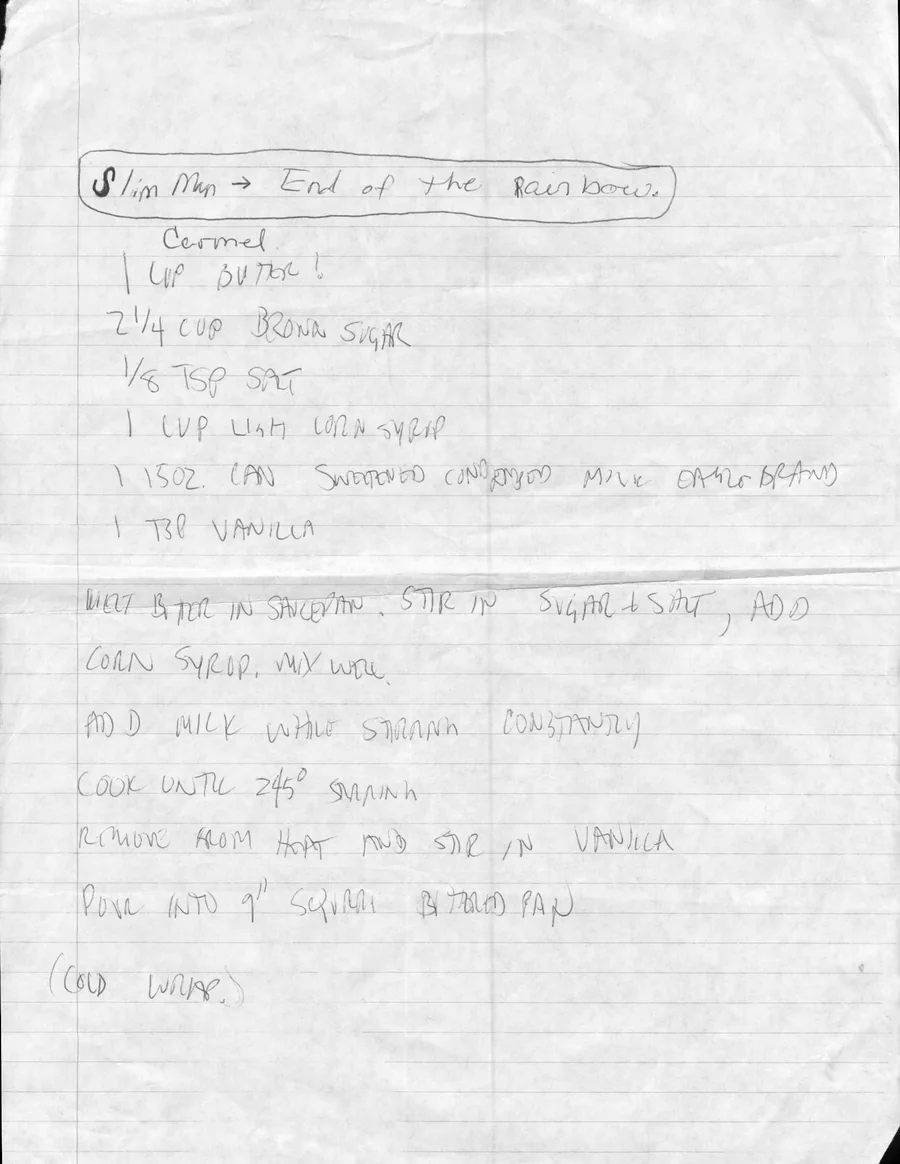 Slim Man → End of the Rainbow.
Carmel
1 CUP BUTTER!
2 1/4 CUP BROWN SUGAR
1/8 TSP SALT
1 CUP LIGHT CORN SYRUP
1 15OZ. CAN SWEETENED CONDENSED MILK EAGLE BRAND
1 TSP VANILLA
MELT BUTTER IN SAUCEPAN. STIR IN SUGAR & SALT, ADD
CORN SYROP. MIX WELL.
ADD MILK WHILE STIRRING CONSTANTLY
COOK UNTIL 245° STIRRING
REMOVE FROM HEAT AND STIR IN VANILLA
POUR INTO 9" SQUARE BUTTERED PAN
(COLD WRAP.)